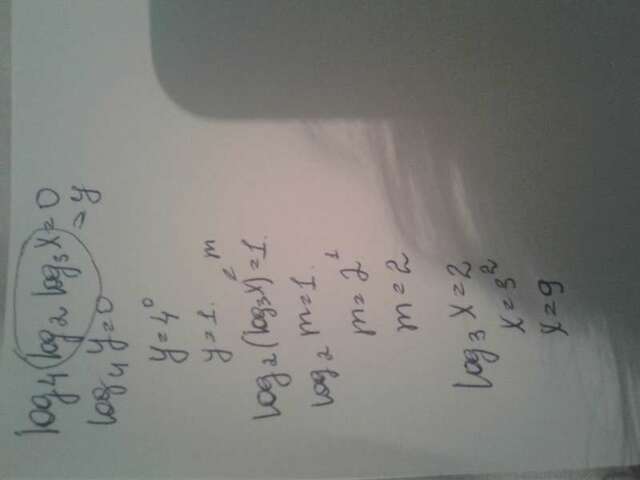 log₄(log₂ log₃x)=0
=y
log₄ y=0
y=4⁰
y=1.
m
log₂(log₃x)=1.
log₂ m=1.
m=2¹
m=2
log₃ x=2
x=3²
x=9